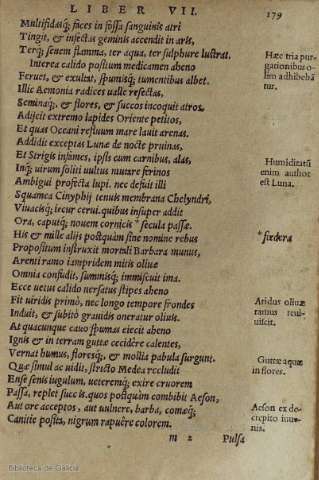 LIBER VII.
179
Multifidasq́; faces in fossa sanguinis atri
Tingit, & infectas geminis accendit in aris,
Terq́; senem flamma, ter aqua, ter sulphure lustrat.
Interea calido positum medicamen aheno
Feruet, & exultat, spumisq́; tumentibus albet.
Illic Aemonia radices ualle resectas,
Seminaq́;, & flores, & succos incoquit atros,
Adijcit extremo lapides Oriente petitos,
Et quas Oceani refluum mare lauit arenas.
Addidit exceptas Lunæ de nocte pruinas,
Et Strigis infames, ipsis cum carnibus, alas,
Inq́; uirum soliti uultus mutare ferinos
Ambigui prosecta lupi. nec defuit illi
Squamea Cinyphij tenuis membrana Chelydri,
Viuacisq́; iecur cerui. quibus insuper addit
Ora, caputq́; nouem cornicis * secula passæ.
His & mille alijs postquàm sine nomine rebus
Propositum instruxit mortali Barbara munus,
Arenti ramo iampridem mitis oliuæ
Omnia confudit, summisq́; immiscuit ima.
Ecce uetus calido uersatus stipes aheno
Fit uiridis primò, nec longo tempore frondes
Induit, & subitò grauidis oneratur oliuis.
At quacunque cauo spumas eiecit aheno
Ignis & in terram guttæ cecidêre calentes,
Vernat humus, floresq́;, & mollia pabula surgunt.
Quæ simul ac uidit, stricto Medea recludit
Ense senis iugulum, ueteremq́; exire cruorem
Passa, replet succis. quos postquàm combibit Aeson,
Aut ore acceptos, aut uulnere, barba, comæq́;
Canitie posita, nigrum rapuêre colorem.
m 2 Pulsa
Hæc tria pur-
gationibus o-
lim adhibebã
tur.
Humiditatũ
enim author
est Luna.
*fœdera
Aridus oliuæ
ramus reui-
uiscit.
Guttæ aquæ
in flores.
Aeson ex de-
crepito iuue-
nis.
Biblioteca de Galicia